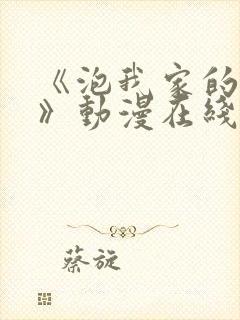 《泡我家的
》动漫在线
蔡旋